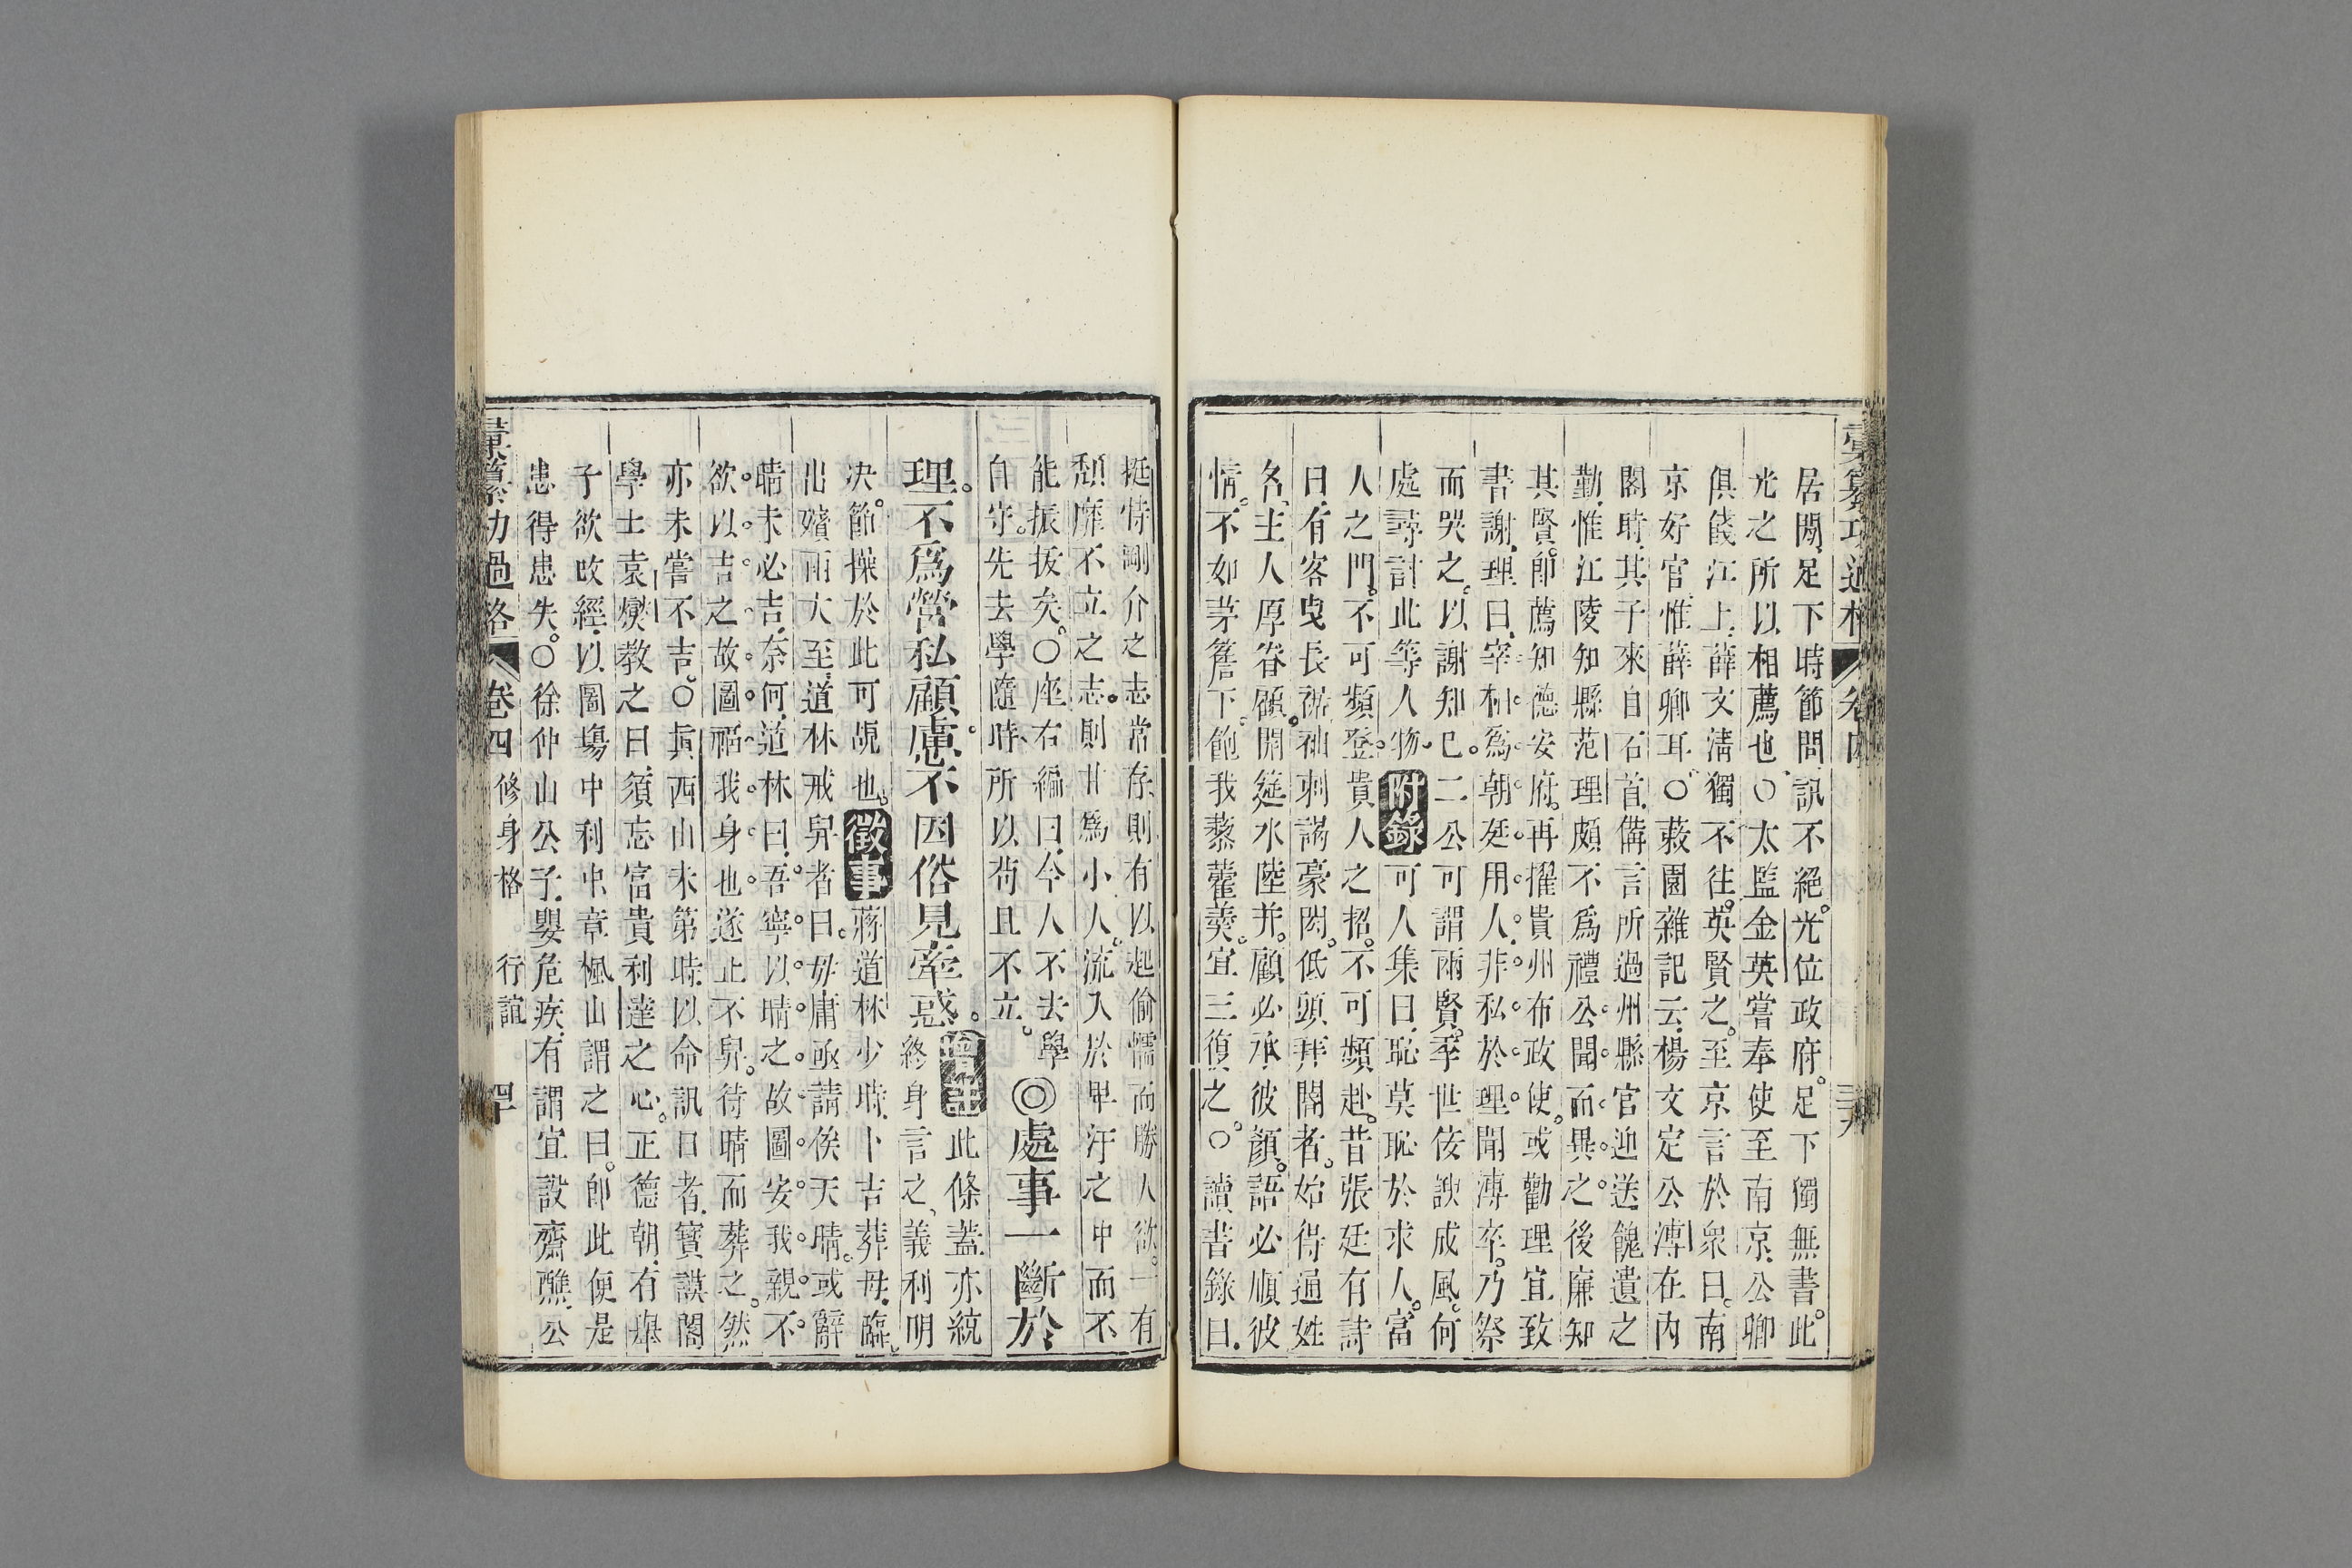 彙纂功過格 卷四 三九
居閒。足下時節問訊不絕。光位政府。足下獨無書。此
光之所以相薦也。○太監金英嘗奉使至南京。公卿
俱餞江上。薛文清獨不往。英賢之。至京言於衆曰。南
京好官。惟薛卿耳。○菽園雜記云。楊文定公溥在內
閣時。其子來自石首。備言所過州縣官迎送餽遺之
勤。惟江陵知縣范理頗不爲禮。公聞而異之。後廉知
其賢。即薦知德安府。再擢貴州布政使。或勸理宜致
書謝。理曰。宰相爲朝廷用人。非私於理。聞溥卒。乃祭
而哭之。以謝知已。二公可謂兩賢。季世侫諛成風。何
處尋討此等人物。附錄可人集曰。恥莫恥於求人。富
人之門。不可頻登。貴人之招。不可頻赴。昔張廷有詩
曰。有客曳長裾。袖刺謁豪閎。低頭拜閽者。始得通姓
名。主人厚眷顧。開筵水陸并。顧必承彼顏。語必順彼
情。不如茅簷下。飽我藜藿羹。宜三復之。○讀書錄曰。
挺恃剛介之志常存。則有以起偷懦而勝人欲。一有
頹靡不立之志。則甘爲小人。流入於卑汙之中而不
能振拔矣。○座右編曰。今人不去學
自守。先去學隨時。所以苟且不立。
◎處事一斷於
理。不爲營私顧慮。不因俗見牽惑。
增註此條蓋亦統
終身言之。義利明
决。節操於此可覘也。徵事蔣道林少時。卜吉葬母。臨
出殯雨大至。道林戒舁者曰。毋庸亟請俟天晴。或辭
晴未必吉。奈何。道林曰。吾寧以晴之故圖安我親。不
欲以吉之故圖福我身也。遂止不舁。待晴而葬之。然
亦未嘗不吉。○眞西山未第時。以命訊日者。寶謨閣
學士袁燮教之曰。須忘富貴利達之心。正德朝。有舉
子欲改經。以圖塲中利中。章楓山謂之曰。即此便是
患得患失。○徐仲山公子。嬰危疾。有謂宜設齋醮。公
彙纂功過格 卷四 修身格 行誼 四